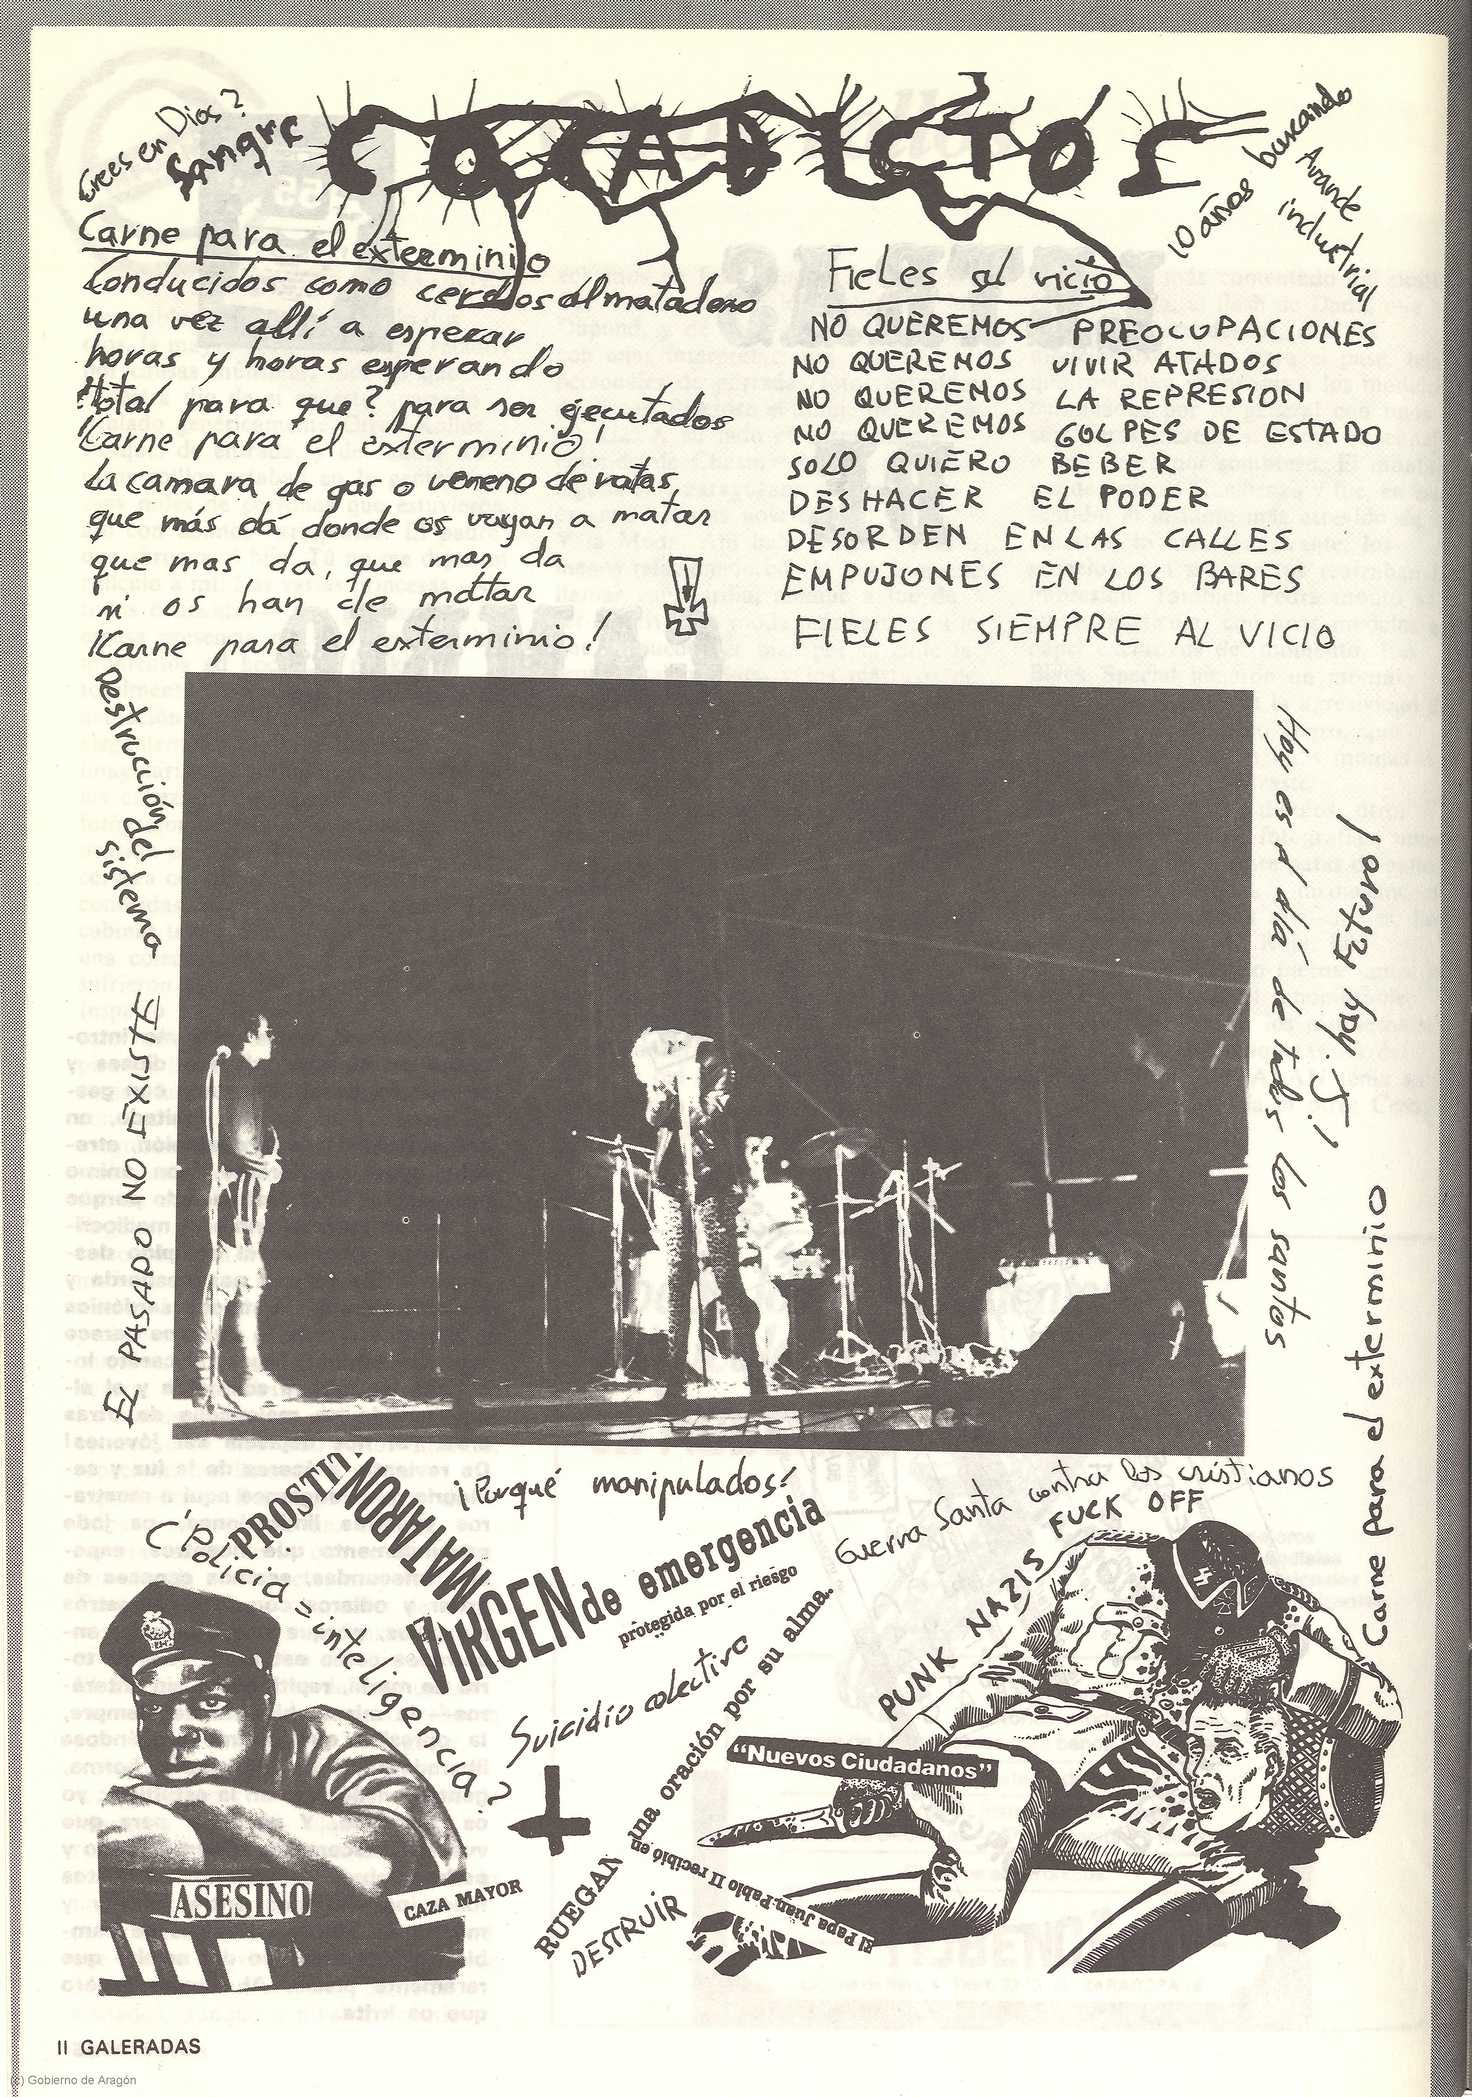 Crees en Dios?
Sangre
COCADICTOS
10 años buscando
Avande
industrial
Carne para el exterminio
Conducidos como cerdos al matadero
una vez allí a esperar
horas y horas esperando
total para que? para ser ejecutados
¡Carne para el exterminio!
La camara de gas o veneno de ratas
que más dá donde os vayan a matar
que mas da, que mas da
si os han de matar
¡Carne para el exterminio!
Fieles al vicio
NO QUEREMOS PREOCUPACIONES
NO QUEREMOS VIVIR ATADOS
NO QUEREMOS LA REPRESION
NO QUEREMOS GOLPES DE ESTADO
SOLO QUIERO BEBER
DESHACER EL PODER
DESORDEN EN LAS CALLES
EMPUJONES EN LOS BARES
FIELES SIEMPRE AL VICIO
Destrucción del
sistema
EL PASADO NO EXISTE
Hoy es el día de todos los santos
¡Si hay Futuro!
Carne para el exterminio
¡Porqué manipulados!
Guerra Santa contra los cristianos
FUCK OFF
PUNK NAZIS
¿"Policia inteligencia?
PROSTIT
MATARON
VIRGEN de emergencia
protegida por el riesgo
Suicidio colectivo
"Nuevos Ciudadanos"
RUEGAN una oración por su alma.
El Papa Juan-Pablo II recibió en
DESTRUIR
ASESINO
CAZA MAYOR
II GALERADAS
(c) Gobierno de Aragón